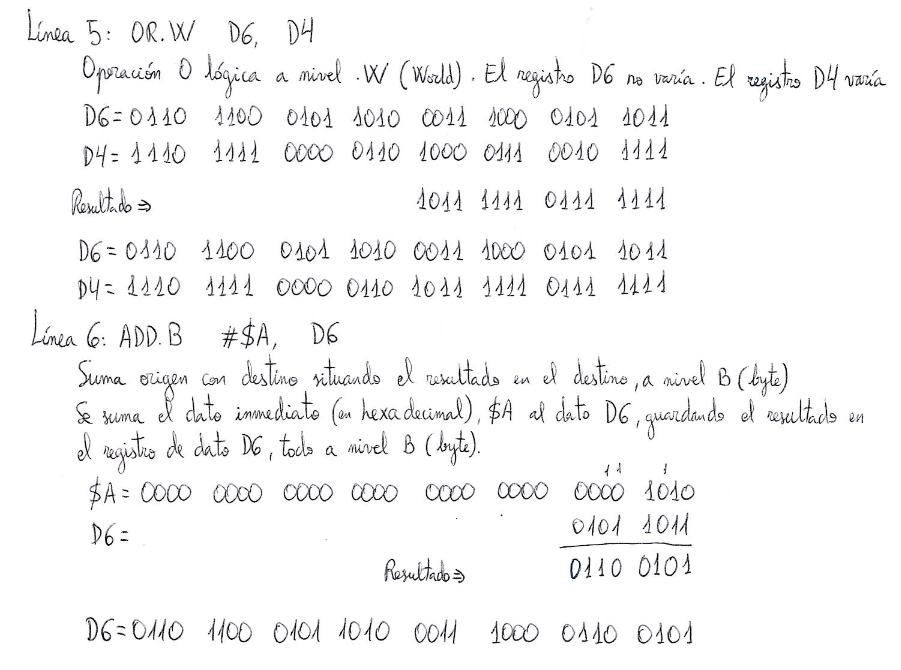 Línea 5: OR.W D6, D4
Operación O lógica a nivel .W (World). El registro D6 no varía. El registro D4 varía
D6= 0110 1100 0101 1010 0011 1000 0101 1011
D4= 1110 1111 0000 0110 1000 0111 0010 1111
Resultado ⇒ 1011 1111 0111 1111
D6= 0110 1100 0101 1010 0011 1000 0101 1011
D4= 1110 1111 0000 0110 1011 1111 0111 1111
Línea 6: ADD.B #$A, D6
Suma origen con destino situando el resultado en el destino, a nivel B (byte)
Se suma el dato inmediato (en hexadecimal), $A al dato D6, guardando el resultado en
el registro de dato D6, todo a nivel B (byte).
1 1 1
$A= 0000 0000 0000 0000 0000 0000 0000 1010
D6= 0101 1011
Resultado ⇒ 0110 0101
D6= 0110 1100 0101 1010 0011 1000 0110 0101